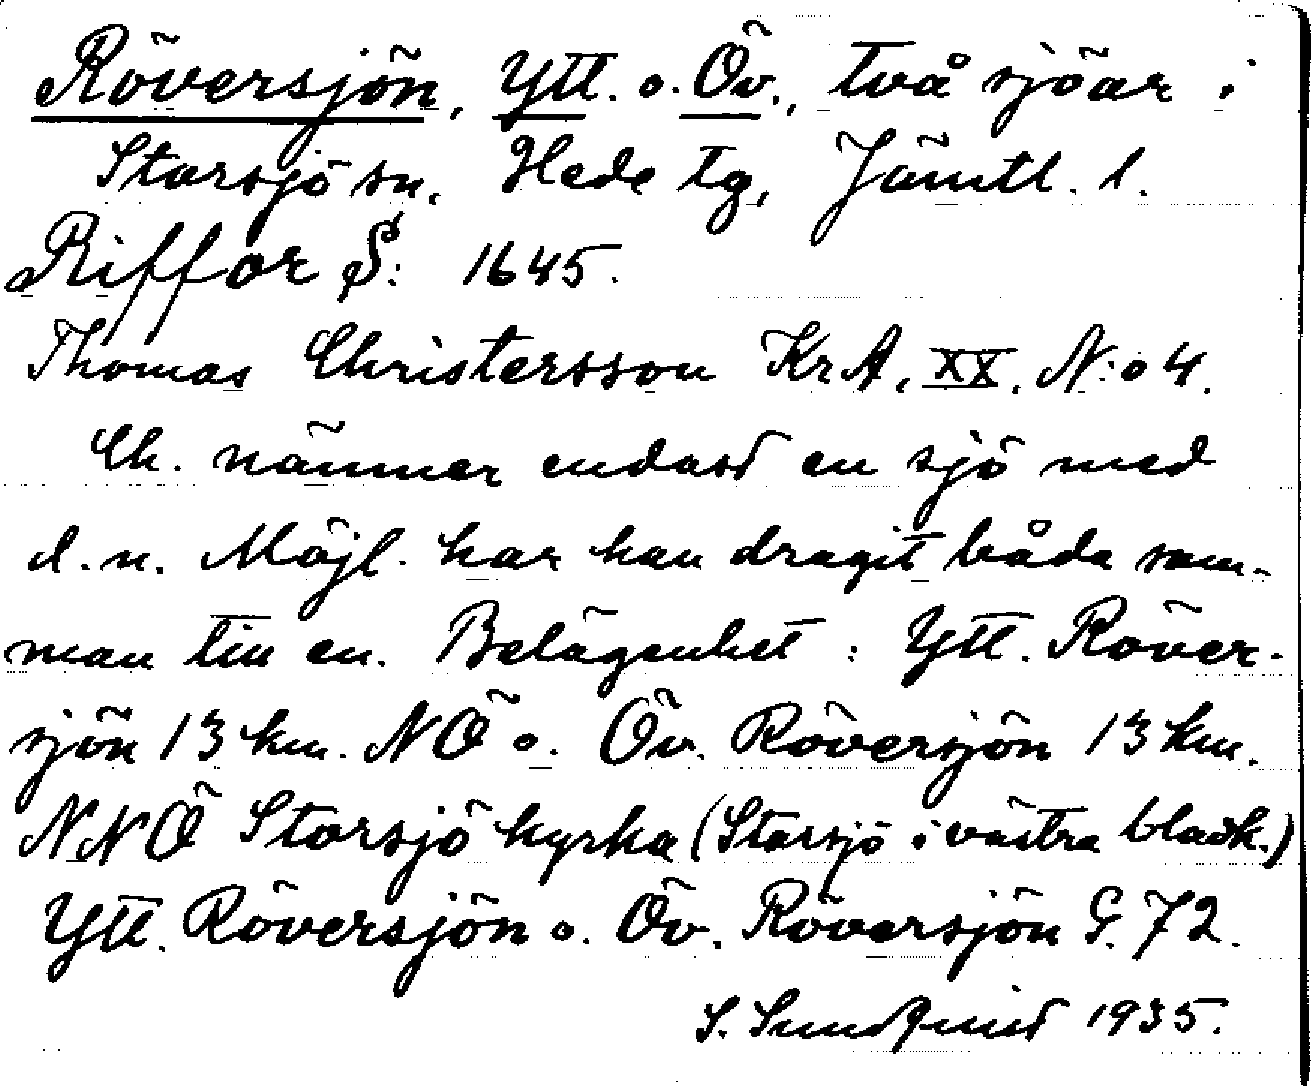 Röversjön, Ytt. o. Öv., två sjöar i
Storsjö sn, Hede tg, Jämtl. l.
Riffor S: 1645.
Thomas Christersson KrA, XX, N:o 4.
Ch. nämner endast en sjö med
d. n. Möjl. har han dragit båda sam-
man till en. Belägenhet: Ytt. Röver-
sjön 13 km. NÖ o. Öv. Röversjön 13 km.
NNÖ Storsjö kyrka (Storsjö i västra bladk.)
Ytt. Röversjön o. Öv. Röversjön G. 72.
S. Sundquist 1935.